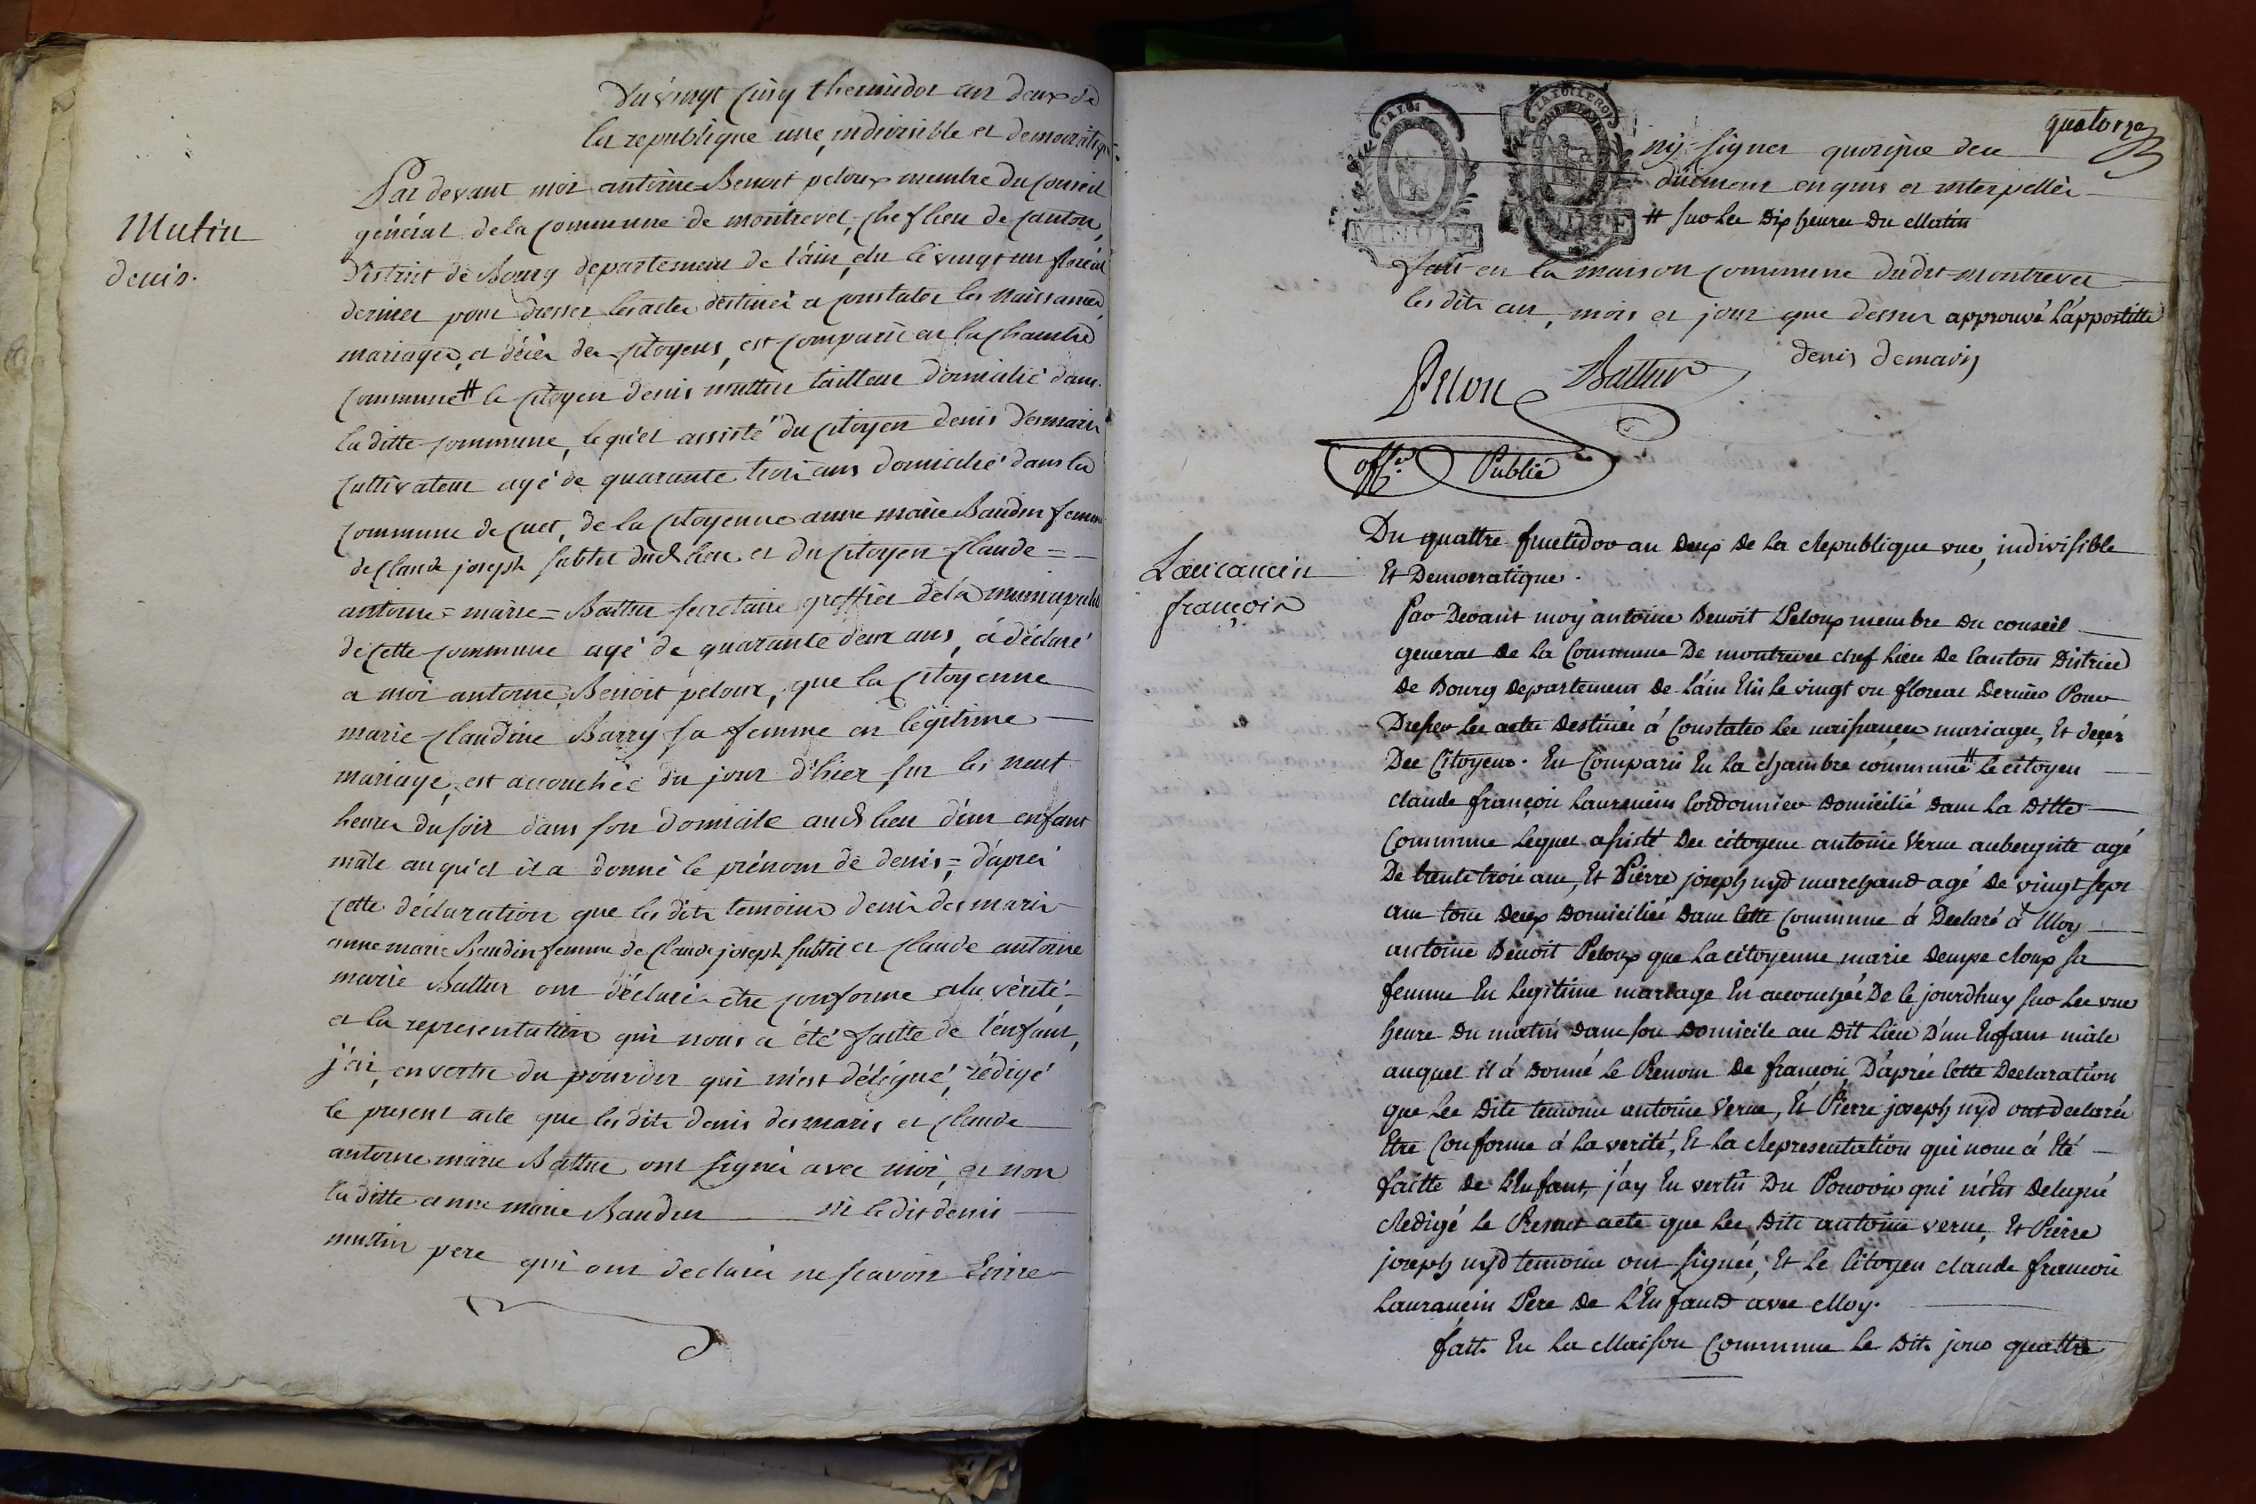 Mutin
denis.
Du vingt cinq thermidor an deux de
la republique une, indivisible et democratiq
Par devant moi antoine Benoit peloux membre du Conseil
général de la Commune de montrevel, chef lieu de Canton,
District de Bourg departement de l'ain, élu le vingt un floreal
dernier pour dresser les actes destinés a constater les naissances,
mariages, et décès des citoyens, est comparu en la chambre
Commune # le citoyen denis muttin tailleur domicilié dans
la ditte commune, lequel assisté du citoyen denis desmaris
Cultivateur agé de quarante trois ans domicilié dans la
Commune de Cuet, de la citoyenne anne marie Baudin femme
de Claude joseph subtil dud. lieu et du citoyen Claude =
antoine = marie = Battur secretaire greffier de la municipalité
de cette commune agé de quarante deux ans, a déclaré
a moi antoine Benoit peloux, que la citoyenne
marie Claudine Barry sa femme en légitime
mariage, est accouchée du jour d'hier sur les neuf
heures du soir dans son domicile aud. lieu d'un enfant
mâle auquel il a donné le prénom de denis, = d'après
cette déclaration que les dits temoins denis desmaris
anne marie Baudin femme de Claude joseph subtil et Claude antoine
marie Battur ont déclaré être conforme a la vérité
et la representation qui nous a été faitte de l'enfant,
j'ai, en vertu du pouvoir qui m'est délégué, rédigé
le present acte que les dits denis desmaris et Claude
antoine marie Battur ont signés avec moi, et non
la ditte anne marie Baudin ni ledit denis
muttin pere qui ont declarés ne scavoir Ecrire
quatorze
ny signer quoique de ce
düement enquis et interpellés
# sur les dix heures du Matin
fait en la maison commune dudit montrevel
les dits an, mois et jour que dessus approuvé l'appostille
denis demaris
Pelou Battur
offer. Public
Laurancin
françois
Du quattre fructidor an deux de la Republique une, indivisible
Et Democratique.
Par Devant moy antoine Benoit Peloux membre du conseil
general de la Commune De montrevel chef lieu De Canton District
de Bourg departement de l'ain Elü le vingt un floreal Dernier Pour
Dresser les actes destinés á Constater les naissances mariages, Et decès
Des Citoyens. Est Comparu En la chambre commune # le citoyen
claude françois Laurancin Cordonnier domicilié dans la ditte
Commune lequel assisté des citoyens antoine Verne aubergiste agé
De trente trois ans, Et Pierre joseph nyd marchand agé de vingt sept
ans tous deux domiciliés dans cette Commune á Declaré á Moy
antoine Benoit Peloux que la citoyenne marie
femme En legitime mariage Est accouchée De le jourdhuy sur les une
heure du matin dans son domicile au dit lieu D'un Enfant mâle
auquel il á donné le Prenom de françois D'après cette Declaration
que les dits temoins antoine Verne, Et Pierre joseph nyd ont declarés
Etre Conforme á la verité, Et la Representation qui nous á Eté
faitte de L'Enfant, j'ay En vertü Du Pouvoir qui m'est delegué
Redigé le Present acte que les dits antoine verne, Et Pierre
joseph nyd temoins ont signés, Et le Citoyen claude françois
Laurancin Pere de L'Enfant avec Moy.
fait En la Maison Commune le dit jour quattre